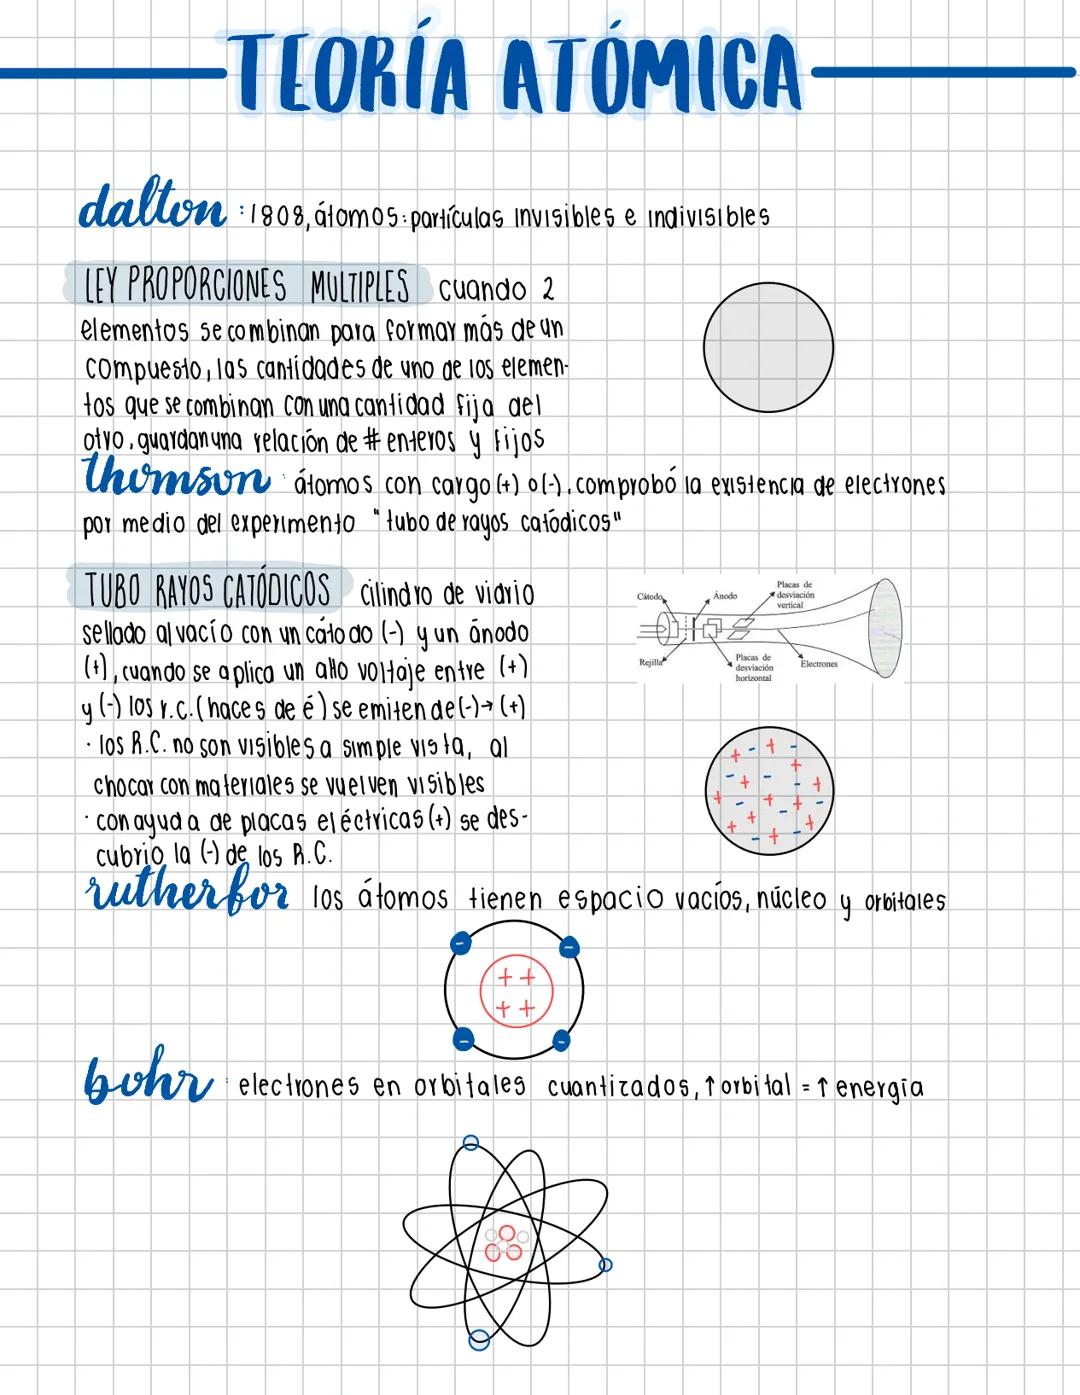 TEORÍA ATÓMICA
dalton : 1808, átomos: partículas invisibles e indivisibles
LEY PROPORCIONES MULTIPLES cuando 2
elementos se combinan para formar más de un
compuesto, las cantidades de uno de los elemen-
tos que se combinan con una cantidad fija del
otro, guardan una relación de # enteros y fijos
thomson : átomos con cargo (+) o (-), comprobó la existencia de electrones
por medio del experimento "tubo de rayos catódicos"
TUBO RAYOS CATÓDICOS cilindro de vidrio
sellado al vacío con un cátodo (-) y un ánodo
(+), cuando se aplica un alto voltaje entre (+)
y (-) los r.c. (haces de é) se emiten de (-)→ (+)
· los R.C. no son visibles a simple vista, al
chocar con materiales se vuelven visibles
· con ayuda de placas eléctricas (+) se des-
cubrio la (-) de los R.C.
Cátodo
Ánodo
Placas de
desviación
vertical
Rejilla
Placas de
desviación
horizontal
Electrones
+ - + -
+
- + - - +
+ - + + -
+ + - +
- +
rutherfor los átomos tienen espacio vacíos, núcleo y orbitales
- -
+ +
+ +
- -
bohr : electrones en orbitales cuantizados, ↑ orbital = ↑ energía